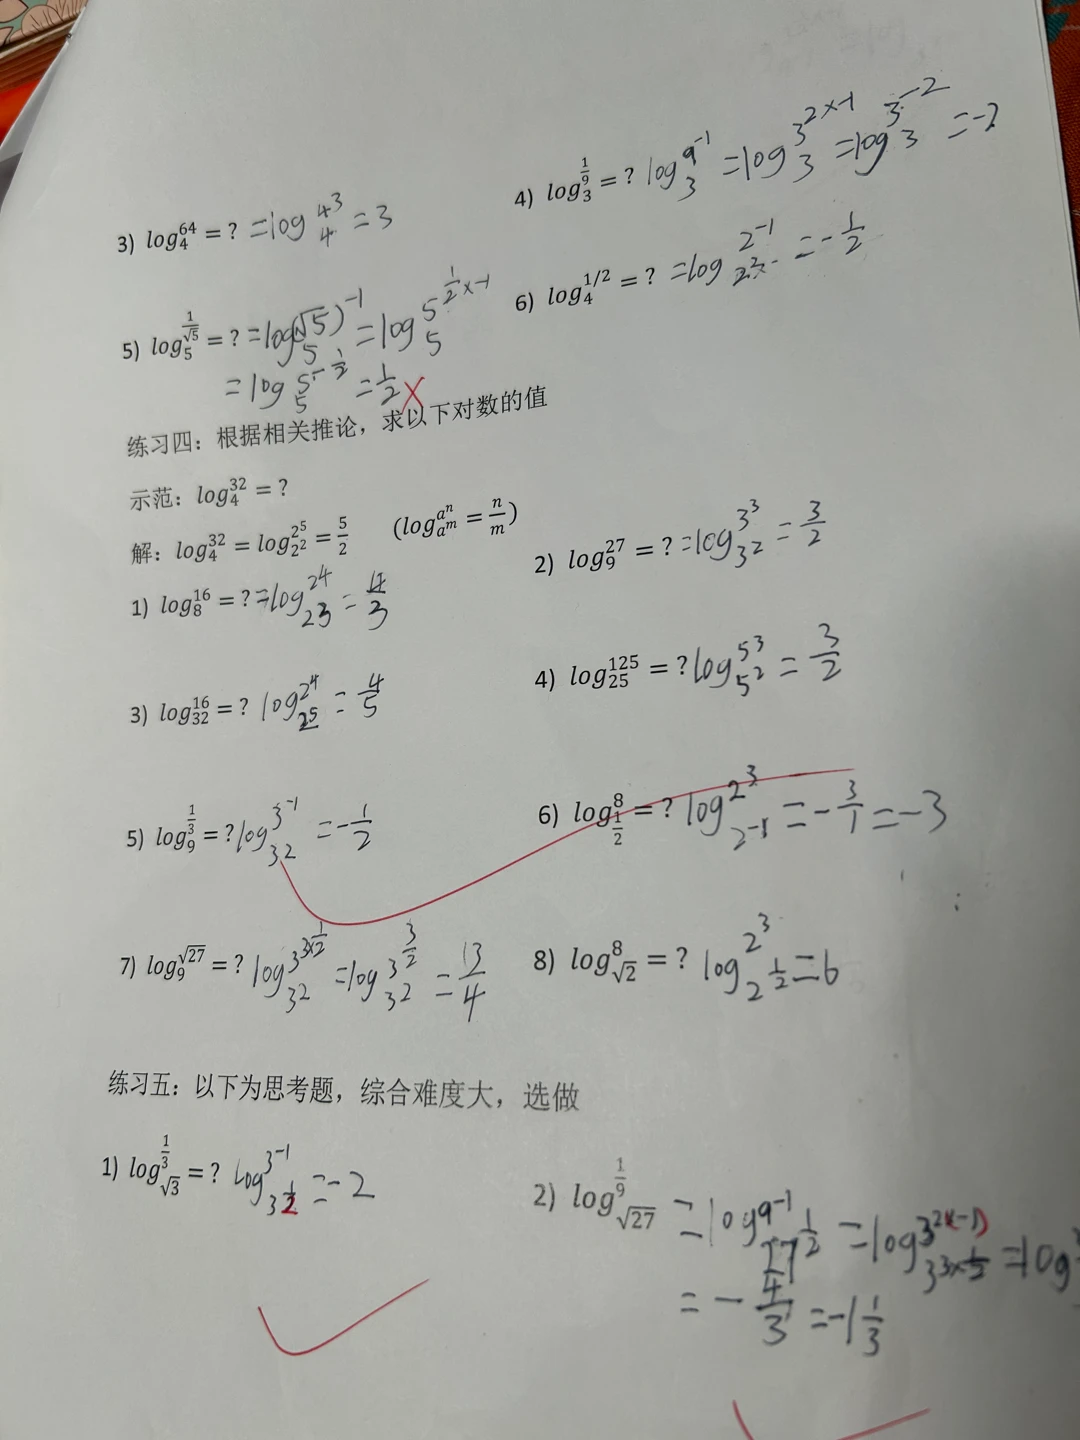 4) log₃^(1/9) = ? log₃^(9⁻¹) = log₃^(3^(2×-1)) = log₃^(3⁻²) = -2
3) log₄^64 = ? = log₄^(4³) = 3
6) log₄^(1/2) = ? = log_(2²)^(2⁻¹) = -1/2
5) log₅^(1/√5) = ? = log₅^((√5)⁻¹) = log₅^(5^(1/2×-1))
= log₅^(5^(-1/2)) = 1/2 ×
练习四：根据相关推论，求以下对数的值
示范：log₄^32 = ?
解：log₄^32 = log_(2²)^(2⁵) = 5/2 (log_(aᵐ)^(aⁿ) = n/m)
2) log₉^27 = ? = log_(3²)^(3³) = 3/2
1) log₈^16 = ? = log_(2³)^(2⁴) = 4/3
4) log₂₅^125 = ? log_(5²)^(5³) = 3/2
3) log₃₂^16 = ? log_(2⁵)^(2⁴) = 4/5
6) log_(1/2)^8 = ? log_(2⁻¹)^(2³) = -3/1 = -3
5) log₉^(1/3) = ? log_(3²)^(3⁻¹) = -1/2
7) log₉^(√27) = ? log_(3²)^(3^(3×1/2)) = log_(3²)^(3^(3/2)) = 13/4
8) log_(√2)^8 = ? log_(2^(1/2))^(2³) = 6
练习五：以下为思考题，综合难度大，选做
1) log_(√3)^(1/3) = ? log_(3^(1/2))^(3⁻¹) = -2
2) log_(√27)^(1/9) = log_(27^(1/2))^(9⁻¹) = log_(3^(3×1/2))^(3^(2×(-1))) = log
= -4/3 = -1 1/3